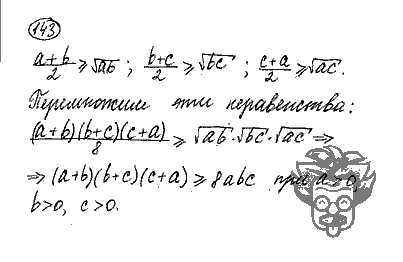 143
(a+b)/2 ⩾ √ab ; (b+c)/2 ⩾ √bc ; (c+a)/2 ⩾ √ac.
Перемножим эти неравенства:
(a+b)(b+c)(c+a)/8 ⩾ √ab·√bc·√ac ⇒
⇒ (a+b)(b+c)(c+a) ⩾ 8abc при a>0,
b>0, c>0.